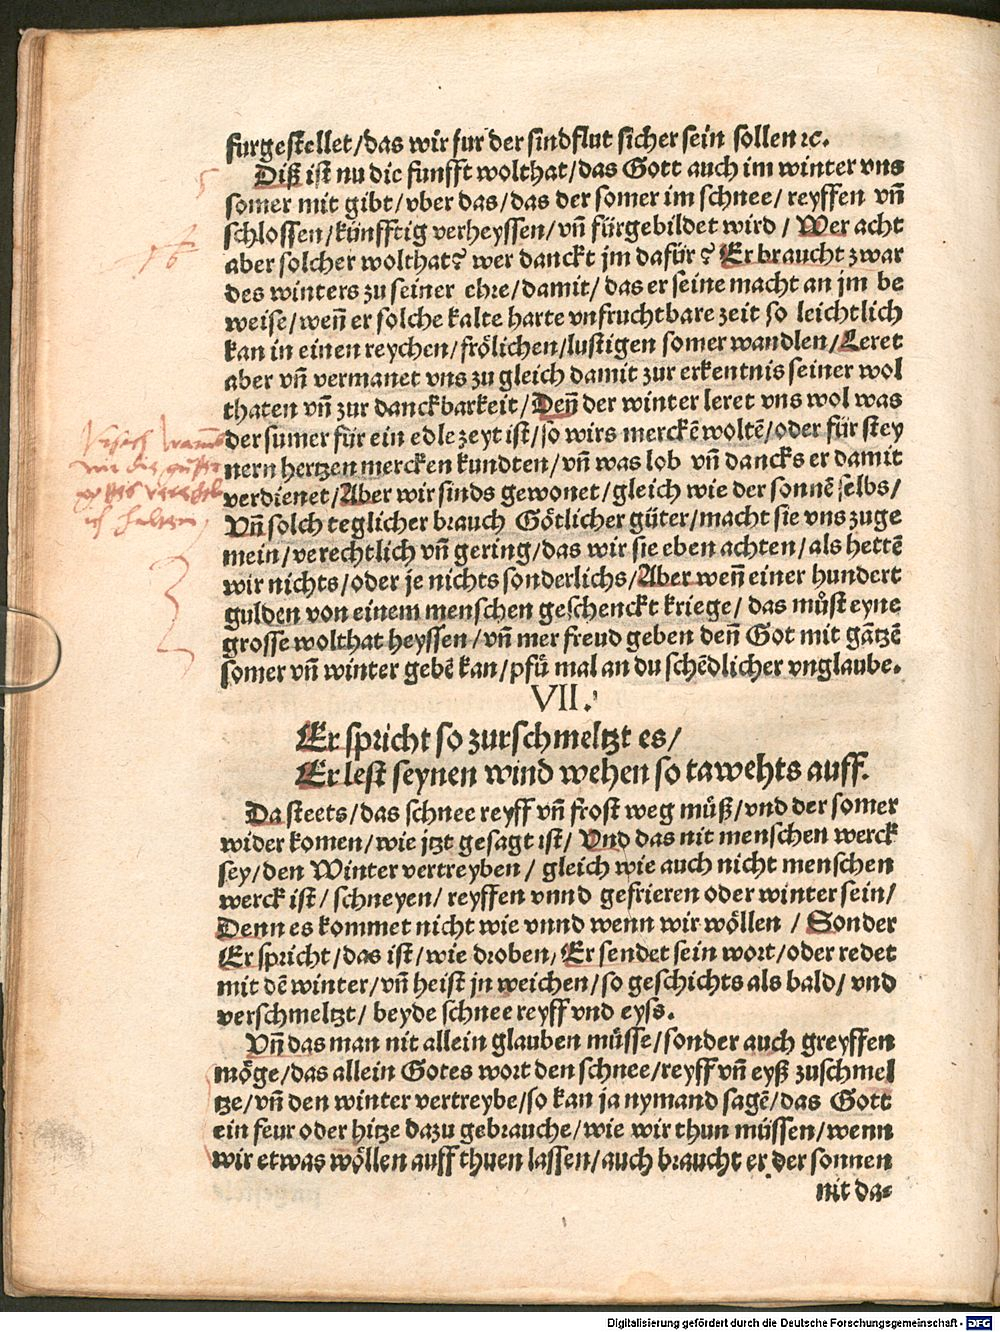 furgestellet/das wir fur der sindflut sicher sein sollen ꝛc.
Diß ist nu die funfft wolthat/das Gott auch im winter vns
somer mit gibt/vber das/das der somer im schnee/ reyffen vñ
schlossen/künfftig verheyssen/vñ fürgebildet wird/ Wer acht
aber solcher wolthat? wer danckt jm dafür? Er braucht zwar
des winters zu seiner ehre/damit/ das er seine macht an jm be
weise/weñ er solche kalte harte vnfruchtbare zeit so leichtlich
kan in einen reychen/frölichen/lustigen somer wandlen/Leret
aber vñ vermanet vns zu gleich damit zur erkentnis seiner wol
thaten vñ zur danckbarkeit/Deñ der winter leret vns wol was
der sumer für ein edle zeyt ist/so wirs merckē woltē/oder für stey
nern hertzen mercken kundten/vñ was lob vñ dancks er damit
verdienet/Aber wir sinds gewonet/gleich wie der sonnē selbs/
Vñ solch teglicher brauch Götlicher güter/macht sie vns zuge
mein/verechtlich vñ gering/das wir sie eben achten/als hettē
wir nichts/oder je nichts sonderlichs/Aber weñ einer hundert
gulden von einem menschen geschenckt kriege/ das můst eyne
grosse wolthat heyssen/vñ mer freud geben deñ Got mit gātzē
somer vñ winter gebē kan/pfü mal an du schēdlicher vnglaube.
VII.
Er spricht so zurschmeltzt es/
Er lest seynen wind wehen so tawehts auff.
Da steets/das schnee reyff vñ frost weg müß/vnd der somer
wider komen/wie jtzt gesagt ist/ Vnd das nit menschen werck
sey/den Winter vertreyben/ gleich wie auch nicht menschen
werck ist/ schneyen/ reyffen vnnd gefrieren oder winter sein/
Denn es kommet nicht wie vnnd wenn wir wöllen/ Sonder
Er spricht/das ist/wie droben/Er sendet sein wort/oder redet
mit dē winter/vñ heist jn weichen/so geschichts als bald/ vnd
verschmeltzt/ beyde schnee reyff vnd eyss.
Vñ das man nit allein glauben müsse/sonder auch greyffen
möge/das allein Gotes wort den schnee/reyff vñ eyß zuschmel
tze/vñ den winter vertreybe/so kan ja nymand sagē/das Gott
ein feur oder hitze dazu gebrauche/wie wir thun müssen/wenn
wir etwas wöllen auff thuen lassen/auch braucht er der sonnen
nit da-
Digitalisierung gefördert durch die Deutsche Forschungsgemeinschaft - DFG